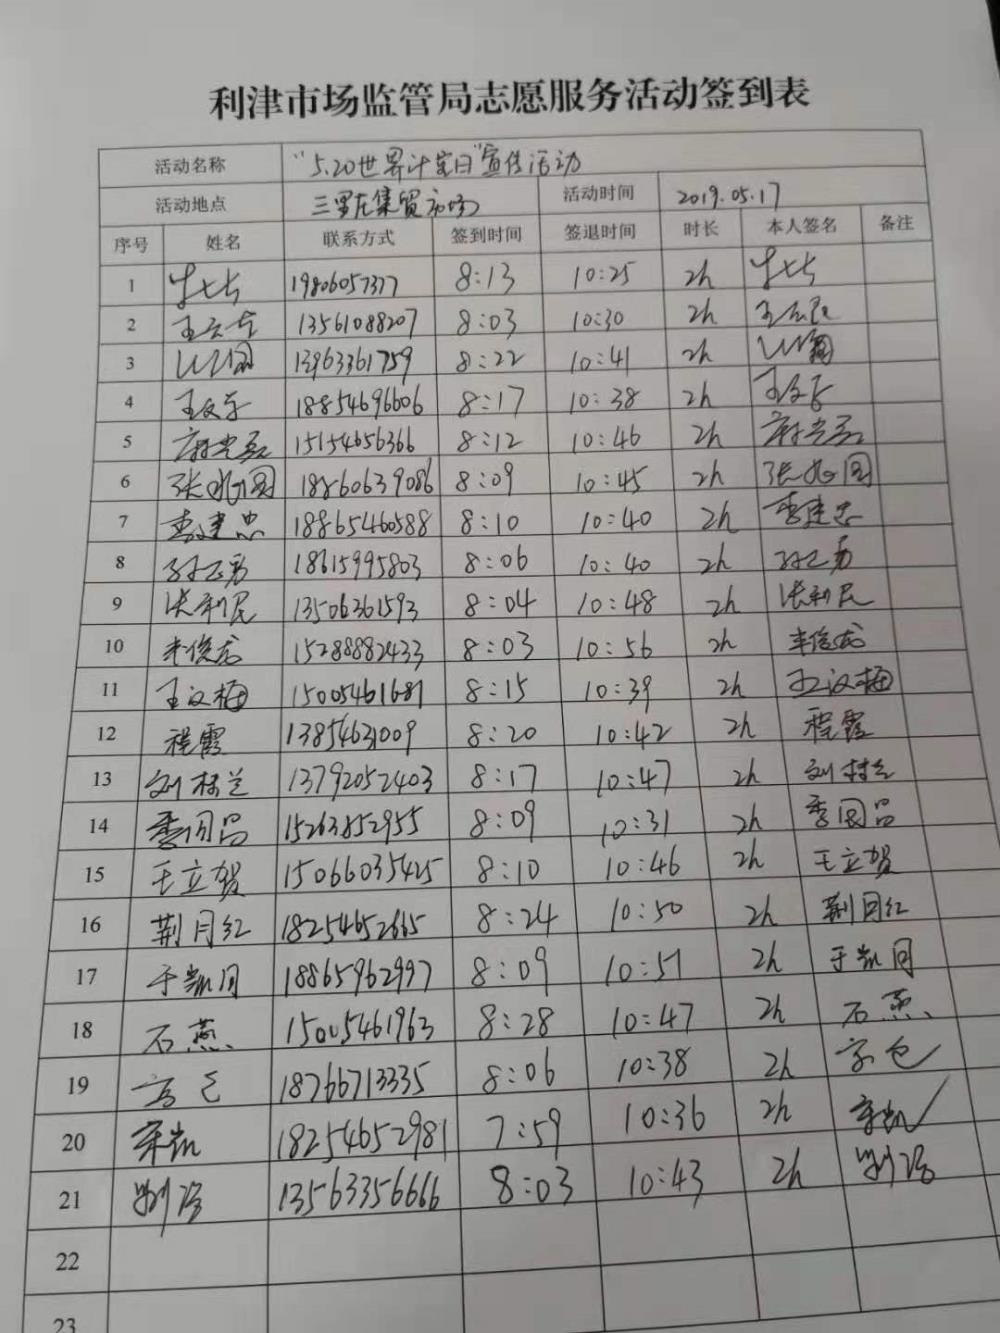 利津市场监管局志愿服务活动签到表
活动名称 “5.20世界计量日”宣传活动
活动地点 三里庄集贸市场 活动时间 2019.05.17
序号 姓名 联系方式 签到时间 签退时间 时长 本人签名 备注
1 19806057377 8:13 10:25 2h
2 13561088207 8:03 10:30 2h
3 13963361759 8:22 10:41 2h
4 18854696606 8:17 10:38 2h
5 15154656366 8:12 10:46 2h
6 18860639086 8:09 10:45 2h
7 李建忠 18865460588 8:10 10:40 2h 李建忠
8 18615995803 8:06 10:40 2h
9 张利民 13506361593 8:04 10:48 2h 张利民
10 15288882433 8:03 10:56 2h
11 王汉梅 15005461681 8:15 10:39 2h 王汉梅
12 程霞 13854631009 8:20 10:42 2h 程霞
13 刘桂兰 13792052403 8:17 10:47 2h 刘桂兰
14 李国昌 15263852955 8:09 10:31 2h 李国昌
15 王立贺 15066035425 8:10 10:46 2h 王立贺
16 荆月红 18254652665 8:24 10:50 2h 荆月红
17 于凯月 18865962997 8:09 10:51 2h 于凯月
18 石燕 15005461963 8:28 10:47 2h 石燕
19 18766713335 8:06 10:38 2h
20 宋凯 18254652981 7:59 10:36 2h 宋凯
21 13563356666 8:03 10:43 2h
22
23